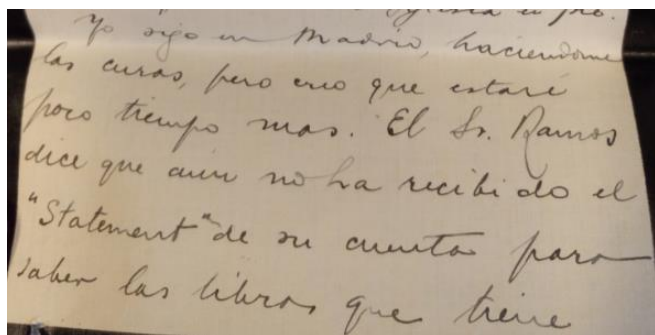 Iglesia
Yo sigo en Madrid, haciendome
las curas, pero creo que estaré
poco tiempo mas. El Sr. Ramos
dice que aun no ha recibido el
"Statement" de su cuenta para
saber las libras que tiene